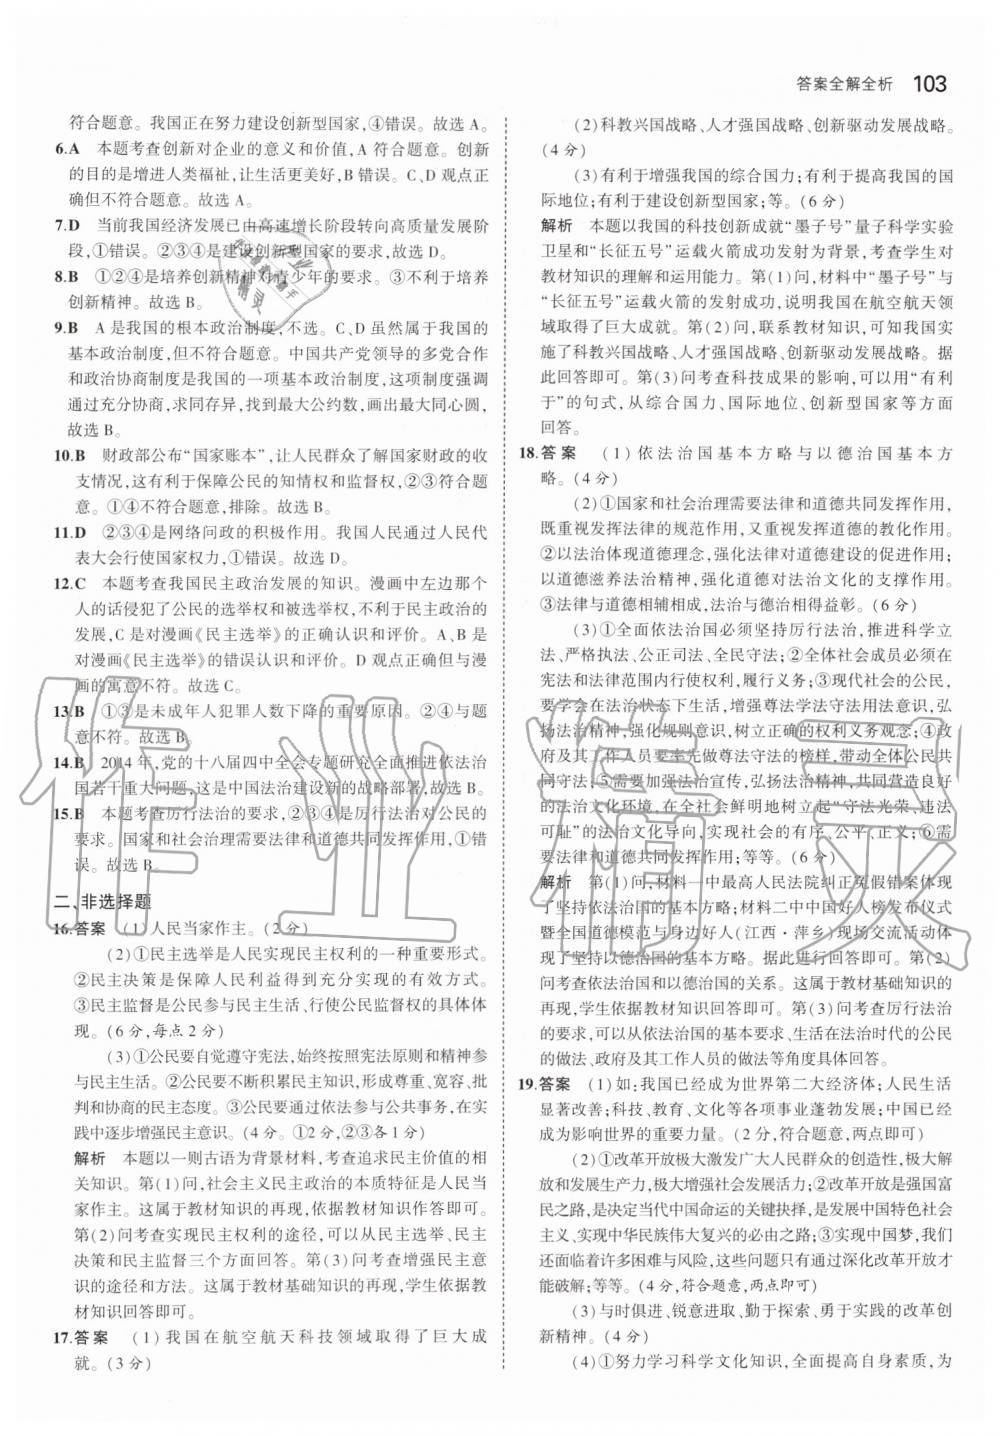 答案全解全析 103
符合题意。我国正在努力建设创新型国家,④错误。故选 A。
6.A 本题考查创新对企业的意义和价值,A 符合题意。创新
的目的是增进人类福祉,让生活更美好,B 错误。C、D 观点正
确但不符合题意。故选 A。
7.D 当前我国经济发展已由高速增长阶段转向高质量发展阶
段,①错误。②③④是建设创新型国家的要求。故选 D。
8.B ①②④是培养创新精神对青少年的要求。③不利于培养
创新精神。故选 B。
9.B A 是我国的根本政治制度,不选。C、D 虽然属于我国的
基本政治制度,但不符合题意。中国共产党领导的多党合作
和政治协商制度是我国的一项基本政治制度,这项制度强调
通过充分协商,求同存异,找到最大公约数,画出最大同心圆,
故选 B。
10.B 财政部公布“国家账本”,让人民群众了解国家财政的收
支情况,这有利于保障公民的知情权和监督权,②③符合题
意。①④不符合题意,排除。故选 B。
11.D ②③④是网络问政的积极作用。我国人民通过人民代
表大会行使国家权力,①错误。故选 D。
12.C 本题考查我国民主政治发展的知识。漫画中左边那个
人的话侵犯了公民的选举权和被选举权,不利于民主政治的
发展,C 是对漫画《民主选举》的正确认识和评价。A、B 是
对漫画《民主选举》的错误认识和评价。D 观点正确但与漫
画的寓意不符。故选 C。
13.B ①③是未成年人犯罪人数下降的重要原因。②④与题
意不符。故选 B。
14.B 2014 年,党的十八届四中全会专题研究全面推进依法治
国若干重大问题,这是中国法治建设新的战略部署,故选 B。
15.B 本题考查厉行法治的要求,②③④是厉行法治对公民的
要求。国家和社会治理需要法律和道德共同发挥作用,①错
误。故选 B。
二、非选择题
16.答案 (1)人民当家作主。(2 分)
(2)①民主选举是人民实现民主权利的一种重要形式。
②民主决策是保障人民利益得到充分实现的有效方式。
③民主监督是公民参与民主生活、行使公民监督权的具体体
现。(6 分,每点 2 分)
(3)①公民要自觉遵守宪法,始终按照宪法原则和精神参
与民主生活。②公民要不断积累民主知识,形成尊重、宽容、批
判和协商的民主态度。③公民要通过依法参与公共事务,在实
践中逐步增强民主意识。(4 分。①2 分,②③各 1 分)
解析 本题以一则古语为背景材料,考查追求民主价值的相
关知识。第(1)问,社会主义民主政治的本质特征是人民当
家作主。这属于教材基础知识的再现,依据教材知识回答即可。
第(2)问考查实现民主权利的途径,可以从民主选举、民主
决策和民主监督三个方面回答。第(3)问考查增强民主意
识的途径和方法。这属于教材基础知识的再现,学生依据教
材知识回答即可。
17.答案 (1)我国在航空航天科技领域取得了巨大成
就。(3 分)
(2)科教兴国战略、人才强国战略、创新驱动发展战略。
(4 分)
(3)有利于增强我国的综合国力;有利于提高我国的国
际地位;有利于建设创新型国家;等。(6 分)
解析 本题以我国的科技创新成就“墨子号”量子科学实验
卫星和“长征五号”运载火箭成功发射为背景,考查学生对
教材知识的理解和运用能力。第(1)问,材料中“墨子号”与
“长征五号”运载火箭的发射成功,说明我国在航空航天领
域取得了巨大成就。第(2)问,联系教材知识,可知我国实
施了科教兴国战略、人才强国战略、创新驱动发展战略。据
此回答即可。第(3)问考查科技成果的影响,可以用“有利
于”的句式,从综合国力、国际地位、创新型国家等方面
回答。
18.答案 (1)依法治国基本方略与以德治国基本方
略。(4 分)
(2)①国家和社会治理需要法律和道德共同发挥作用,
既重视发挥法律的规范作用,又重视发挥道德的教化作用。
②以法治体现道德理念,强化法律对道德建设的促进作用;
以道德滋养法治精神,强化道德对法治文化的支撑作用。
③法律与道德相辅相成,法治与德治相得益彰。(6 分)
(3)①全面依法治国必须坚持厉行法治,推进科学立
法、严格执法、公正司法、全民守法;②全体社会成员必须在
宪法和法律范围内行使权利,履行义务;③现代社会的公民,
要学会在法治状态下生活,增强尊法学法守法用法意识,弘
扬法治精神,强化规则意识,树立正确的权利义务观念;④政
府及其工作人员要率先做尊法守法的榜样,带动全体公民共
同守法;⑤需要加强法治宣传,弘扬法治精神,共同营造良好
的法治文化环境,在全社会鲜明地树立起“守法光荣、违法
可耻”的法治文化导向,实现社会的有序、公平、正义;⑥需
要法律和道德共同发挥作用;等等。(6 分)
解析 第(1)问,材料一中最高人民法院纠正冤假错案体现
了坚持依法治国的基本方略;材料二中中国好人榜发布仪式
暨全国道德模范与身边好人(江西·萍乡)现场交流活动体
现了坚持以德治国的基本方略。据此进行回答即可。第(2)
问考查依法治国和以德治国的关系。这属于基础知识的
再现,学生依据教材知识回答即可。第(3)问考查厉行法治
的要求,可以从依法治国的基本要求、生活在法治时代的公民
的做法、政府及其工作人员的做法等角度具体回答。
19.答案 (1)如:我国已经成为世界第二大经济体;人民生活
显著改善;科技、教育、文化等各项事业蓬勃发展;中国已经
成为影响世界的重要力量。(2 分,符合题意,两点即可)
(2)①改革开放极大激发广大人民群众的创造性,极大解
放和发展生产力,极大增强社会发展活力;②改革开放是强国富
民之路,是决定当代中国命运的关键抉择,是发展中国特色社会
主义、实现中华民族伟大复兴的必由之路;③实现中国梦,我们
还面临着许多困难与风险,这些问题只有通过深化改革开放才
能破解;等等。(4 分,符合题意,两点即可)
(3)与时俱进、锐意进取、勤于探索、勇于实践的改革创
新精神。(4 分)
(4)①努力学习科学文化知识,全面提高自身素质,为
作业精灵